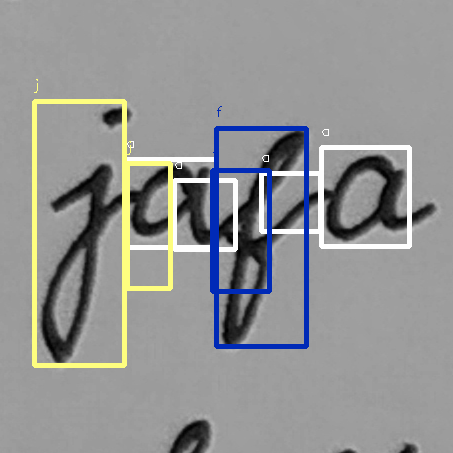 j a a f a a
jafa